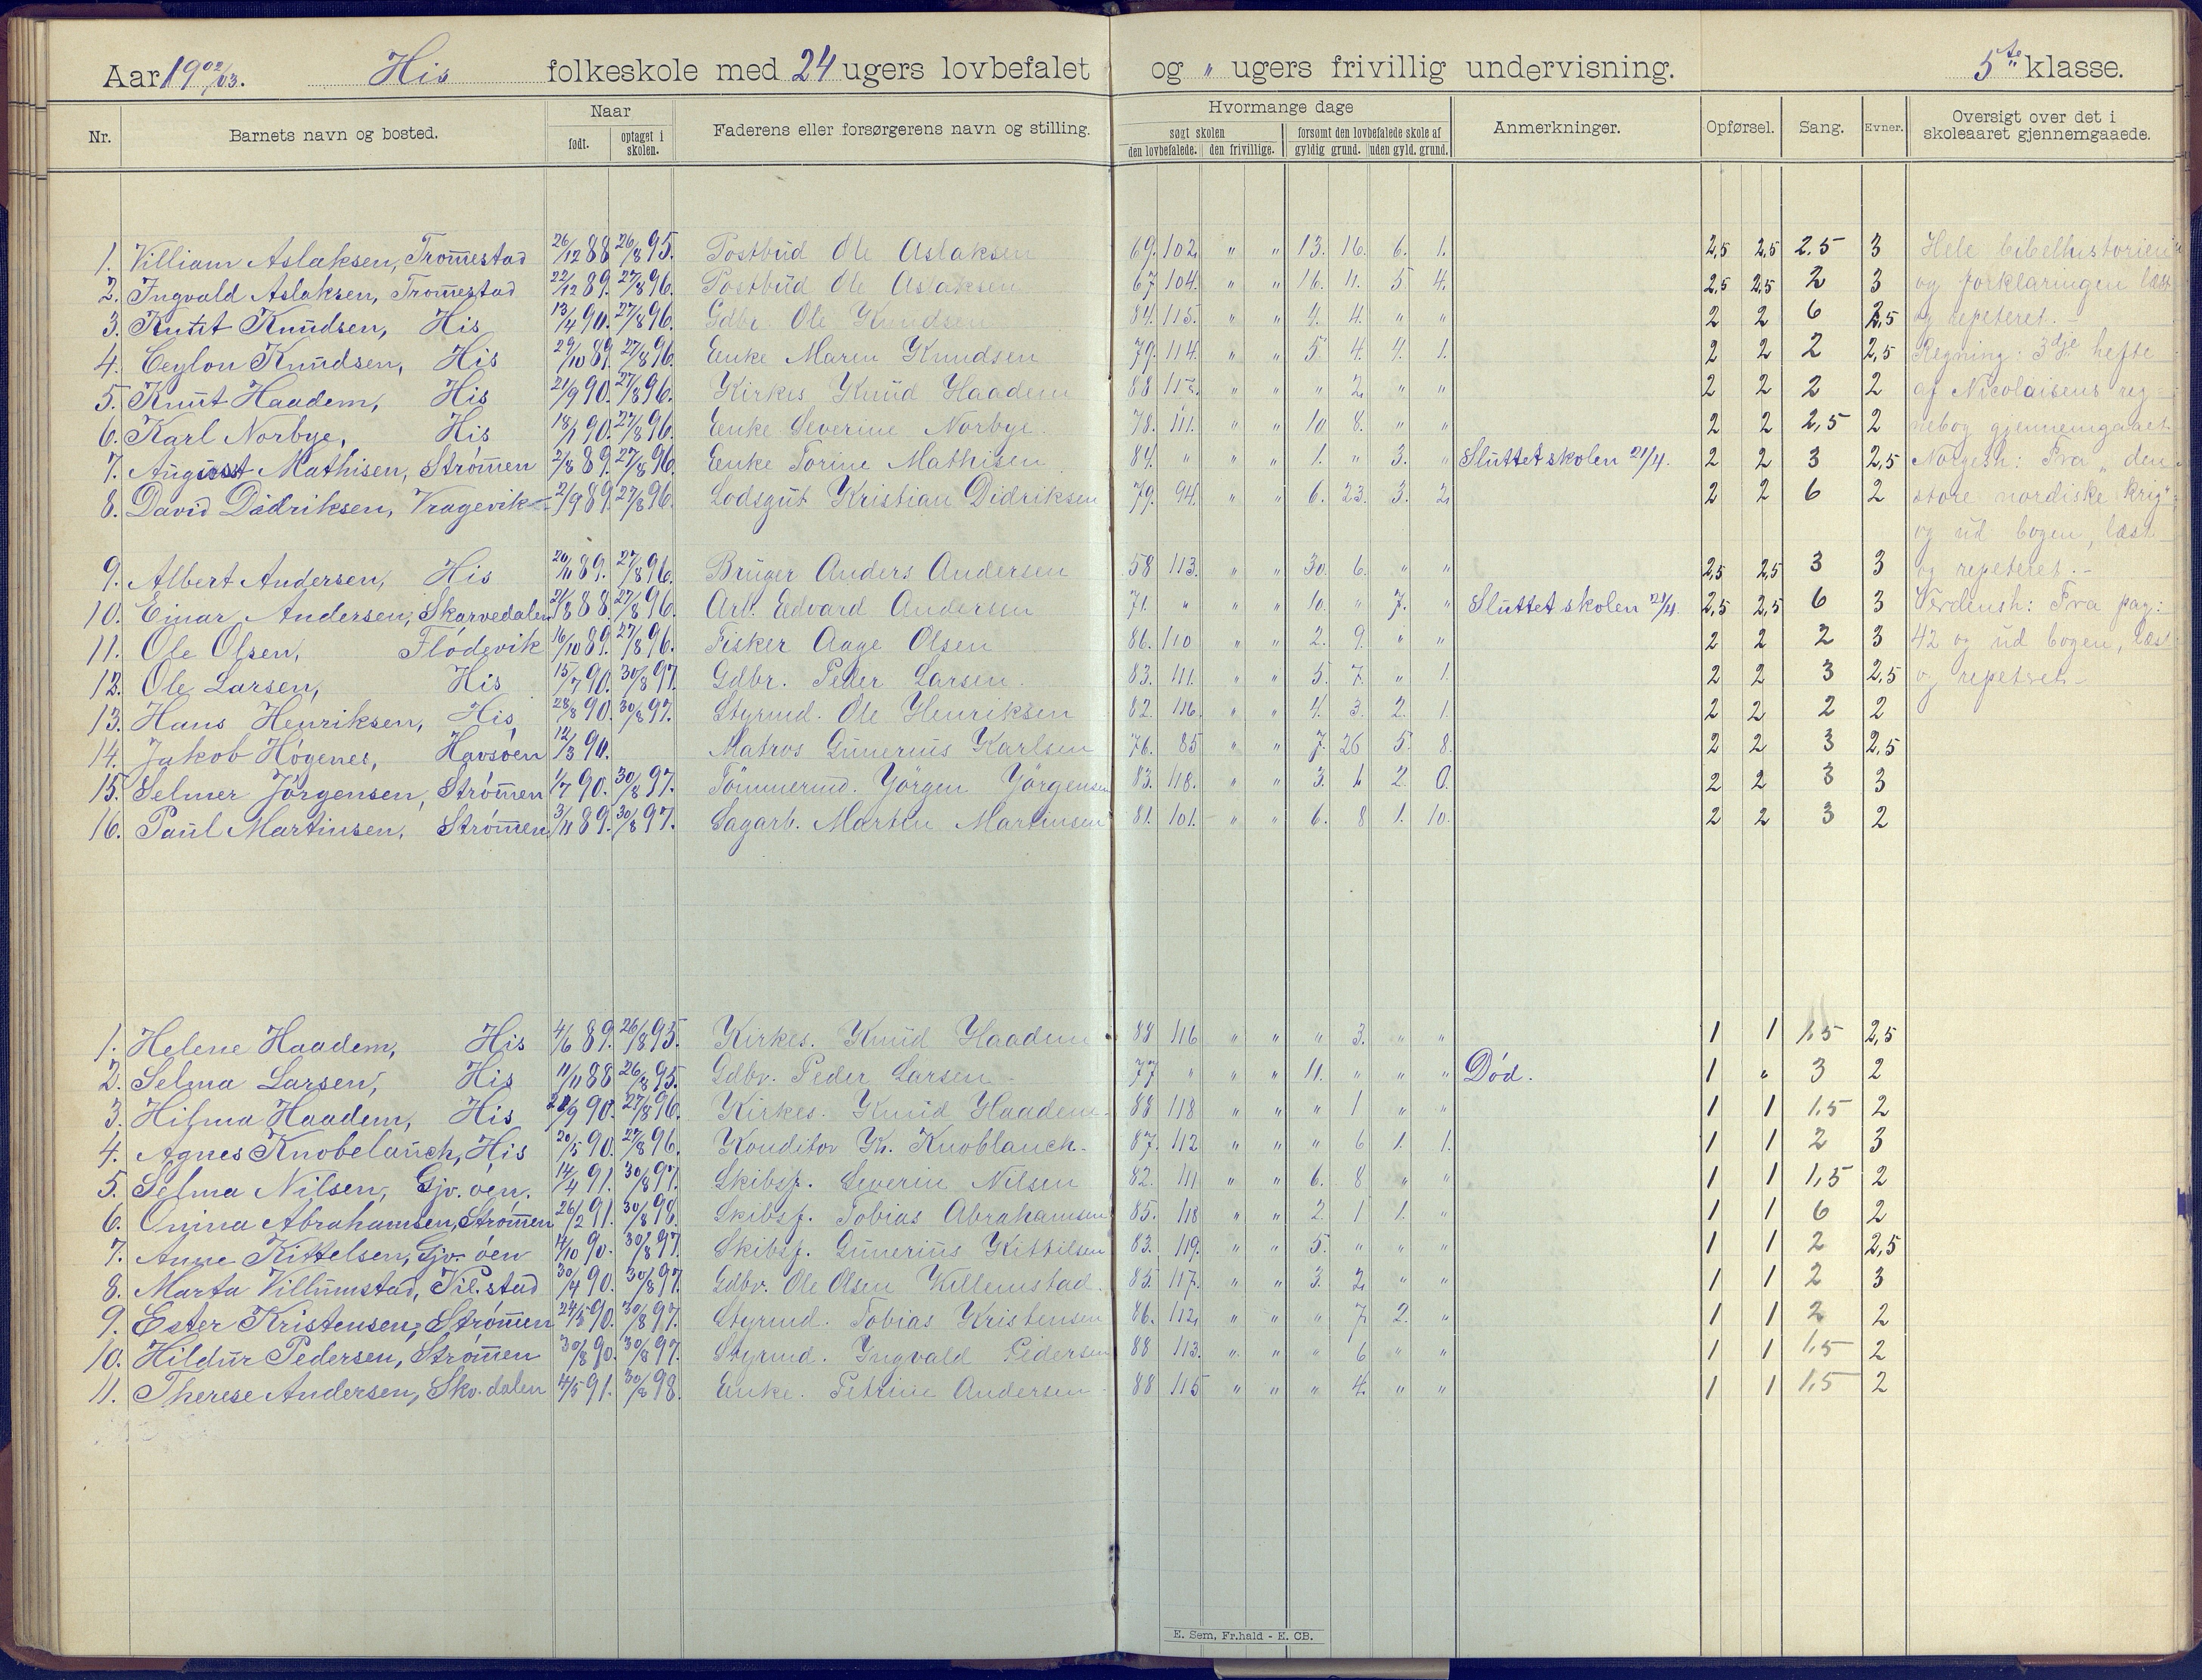 Aar 19 02/03. His folkeskole med 24 ugers lovbefalet og " ugers frivillig undervisning. 5te klasse.
Nr. Barnets navn og bosted. Naar født. optaget i skolen. Faderens eller forsørgerens navn og stilling. Hvormange dage søgt skolen den lovbefalede. den frivillige. forsømt den lovbefalede skole af gyldig grund. uden gyld. grund. Anmerkninger. Opførsel. Sang. Evner. Oversigt over det i skoleaaret gjennemgaaede.
1. Villiam Aslaksen, Trom̄estad 26/12 88 26/8 95. Postbud Ole Aslaksen 69. 102. " " 13. 16. 6. 1. 2,5 2,5 2,5 3 Hele bibelhistorien
2. Ingvald Aslaksen, Trom̄estad 22/12 89. 27/8 96. Postbud Ole Aslaksen 67. 104. " " 16. 11. 5 4. 2,5 2,5 2 3 og forklaringen læst
3. Knut Knudsen, His 13/4 90. 27/8 96. Gdbr. Ole Knudsen 84. 115. " " 4. 4. " " 2 2 6 2,5 og repeteret.
4. Ceylon Knudsen, His 29/10 89. 27/8 96. Enke Maren Knudsen 79. 114. " " 5. 4. 4. 1. 2 2 2 2,5 Regning: 3dje hefte
5. Knut Haadem, His 21/9 90. 27/8 96. Kirkes. Knud Haadem 88 117. " " " 2. " " 2 2 2 2 af Nicolaisens reg-
6. Karl Norbye, His 18/1 90. 27/8 96. Enke Severine Norbye. 78. 111. " " 10. 8. " " 2 2 2,5 2 nebog gjennemgaaet.
7. August Mathisen, Strøm̄en 2/8 89. 27/8 96. Enke Torine Mathisen 84. " " " 1. " 3. " Sluttet skolen 21/4. 2 2 3 2,5 Norgesh: Fra "den
8. David Didriksen, Vragevik 2/9 89. 27/8 96. Lodsgut Kristian Didriksen 79. 94. " " 6. 23. 3. 2. 2 2 6 2 store nordiske krig"
og ud bogen, læst
9. Albert Andersen, His 20/11 89. 27/8 96. Bruger Anders Andersen 58 113. " " 30. 6. " " 2,5 2,5 3 3 og repeteret.-
10. Einar Andersen, Skarvedalen 21/8 88. 27/8 96. Arb. Edvard Andersen 71. " " " 10. " 7. " Sluttet skolen 21/4. 2,5 2,5 6 3 Verdensh: Fra pag:
11. Ole Olsen, Flødevik 16/10 89. 27/8 96. Fisker Aage Olsen 86. 110 " " 2. 9. " " 2 2 2 3 42 og ud bogen, læst
12. Ole Larsen, His 15/7 90. 30/8 97. Gdbr. Peder Larsen. 83. 111. " " 5. 7. " 1. 2 2 3 2,5 og repeteret.-
13. Hans Henriksen, His, 28/8 90. 30/8 97. Styrmd. Ole Henriksen 82. 116. " " 4. 3. 2. 1. 2 2 2 2
14. Jakob Høgenes, Havsøen 12/3 90. Matros Gunerius Karlsen 76. 85 " " 7. 26 5. 8. 2 2 3 2,5
15. Selmer Jørgensen, Strøm̄en 1/7 90. 30/8 97. Tømmermd. Jørgen Jørgensen 83. 118. " " 3. 1. 2. 0. 2 2 3 3
16. Paul Martinsen, Strøm̄en 3/11 89. 30/8 97. Sagarb. Martin Martinsen 81. 101. " " 6. 8 1. 10. 2 2 3 2
1. Helene Haadem, His 4/6 89. 26/8 95. Kirkes. Knud Haadem 88 116 " " " 3. " " 1 1 1,5 2,5
2. Selma Larsen, His 11/11 88 26/8 95. Gdbr. Peder Larsen. 77 " " " 11. " " " Død. 1 " 3 2
3. Hilma Haadem, His 21/9 90. 27/8 96. Kirkes. Knud Haadem. 88 118 " " " 1 " " 1 1 1,5 2
4. Agnes Knobelauch, His 20/5 90. 27/8 96. Konditor Kr. Knoblauch. 87. 112 " " " 6 1. 1. 1 1 2 3
5. Selma Nilsen, Gjv. øen. 14/4 91. 30/8 97. Skibsf. Severin Nilsen 82. 111 " " 6. 8 " " 1 1 1,5 2
6. Onina Abrahamsen, Strøm̄en 26/2 91. 30/8 98. Skibsf. Tobias Abrahamsen 85. 118 " " 2. 1 1. " 1 1 6 2
7. Anne Kittelsen, Gjv. øen 4/10 90. 30/8 97. Skibsf. Gunerius Kittilsen 83. 119. " " 5. " " " 1 1 2 2,5
8. Marta Villumstad, Vil.stad 30/4 90. 30/8 97. Gdbr. Ole Olsen Villumstad. 85. 117. " " 3. 2. " " 1 1 2 3
9. Ester Kristensen, Strøm̄en 24/5 90. 30/8 97. Styrmd. Tobias Kristensen 86. 112. " " " 7. 2. " 1 1 2 2
10. Hildur Pedersen, Strøm̄en 30/8 90. 30/8 97. Styrmd. Ingvald Pedersen 88 113. " " " 6 " " 1 1 1,5 2
11. Therese Andersen, Skv.dalen 4/5 91. 30/8 98. Enke. Petrine Andersen 88 115 " " " 4. " " 1 1 1,5 2
E. Sem, Fr.hald - E. CB.